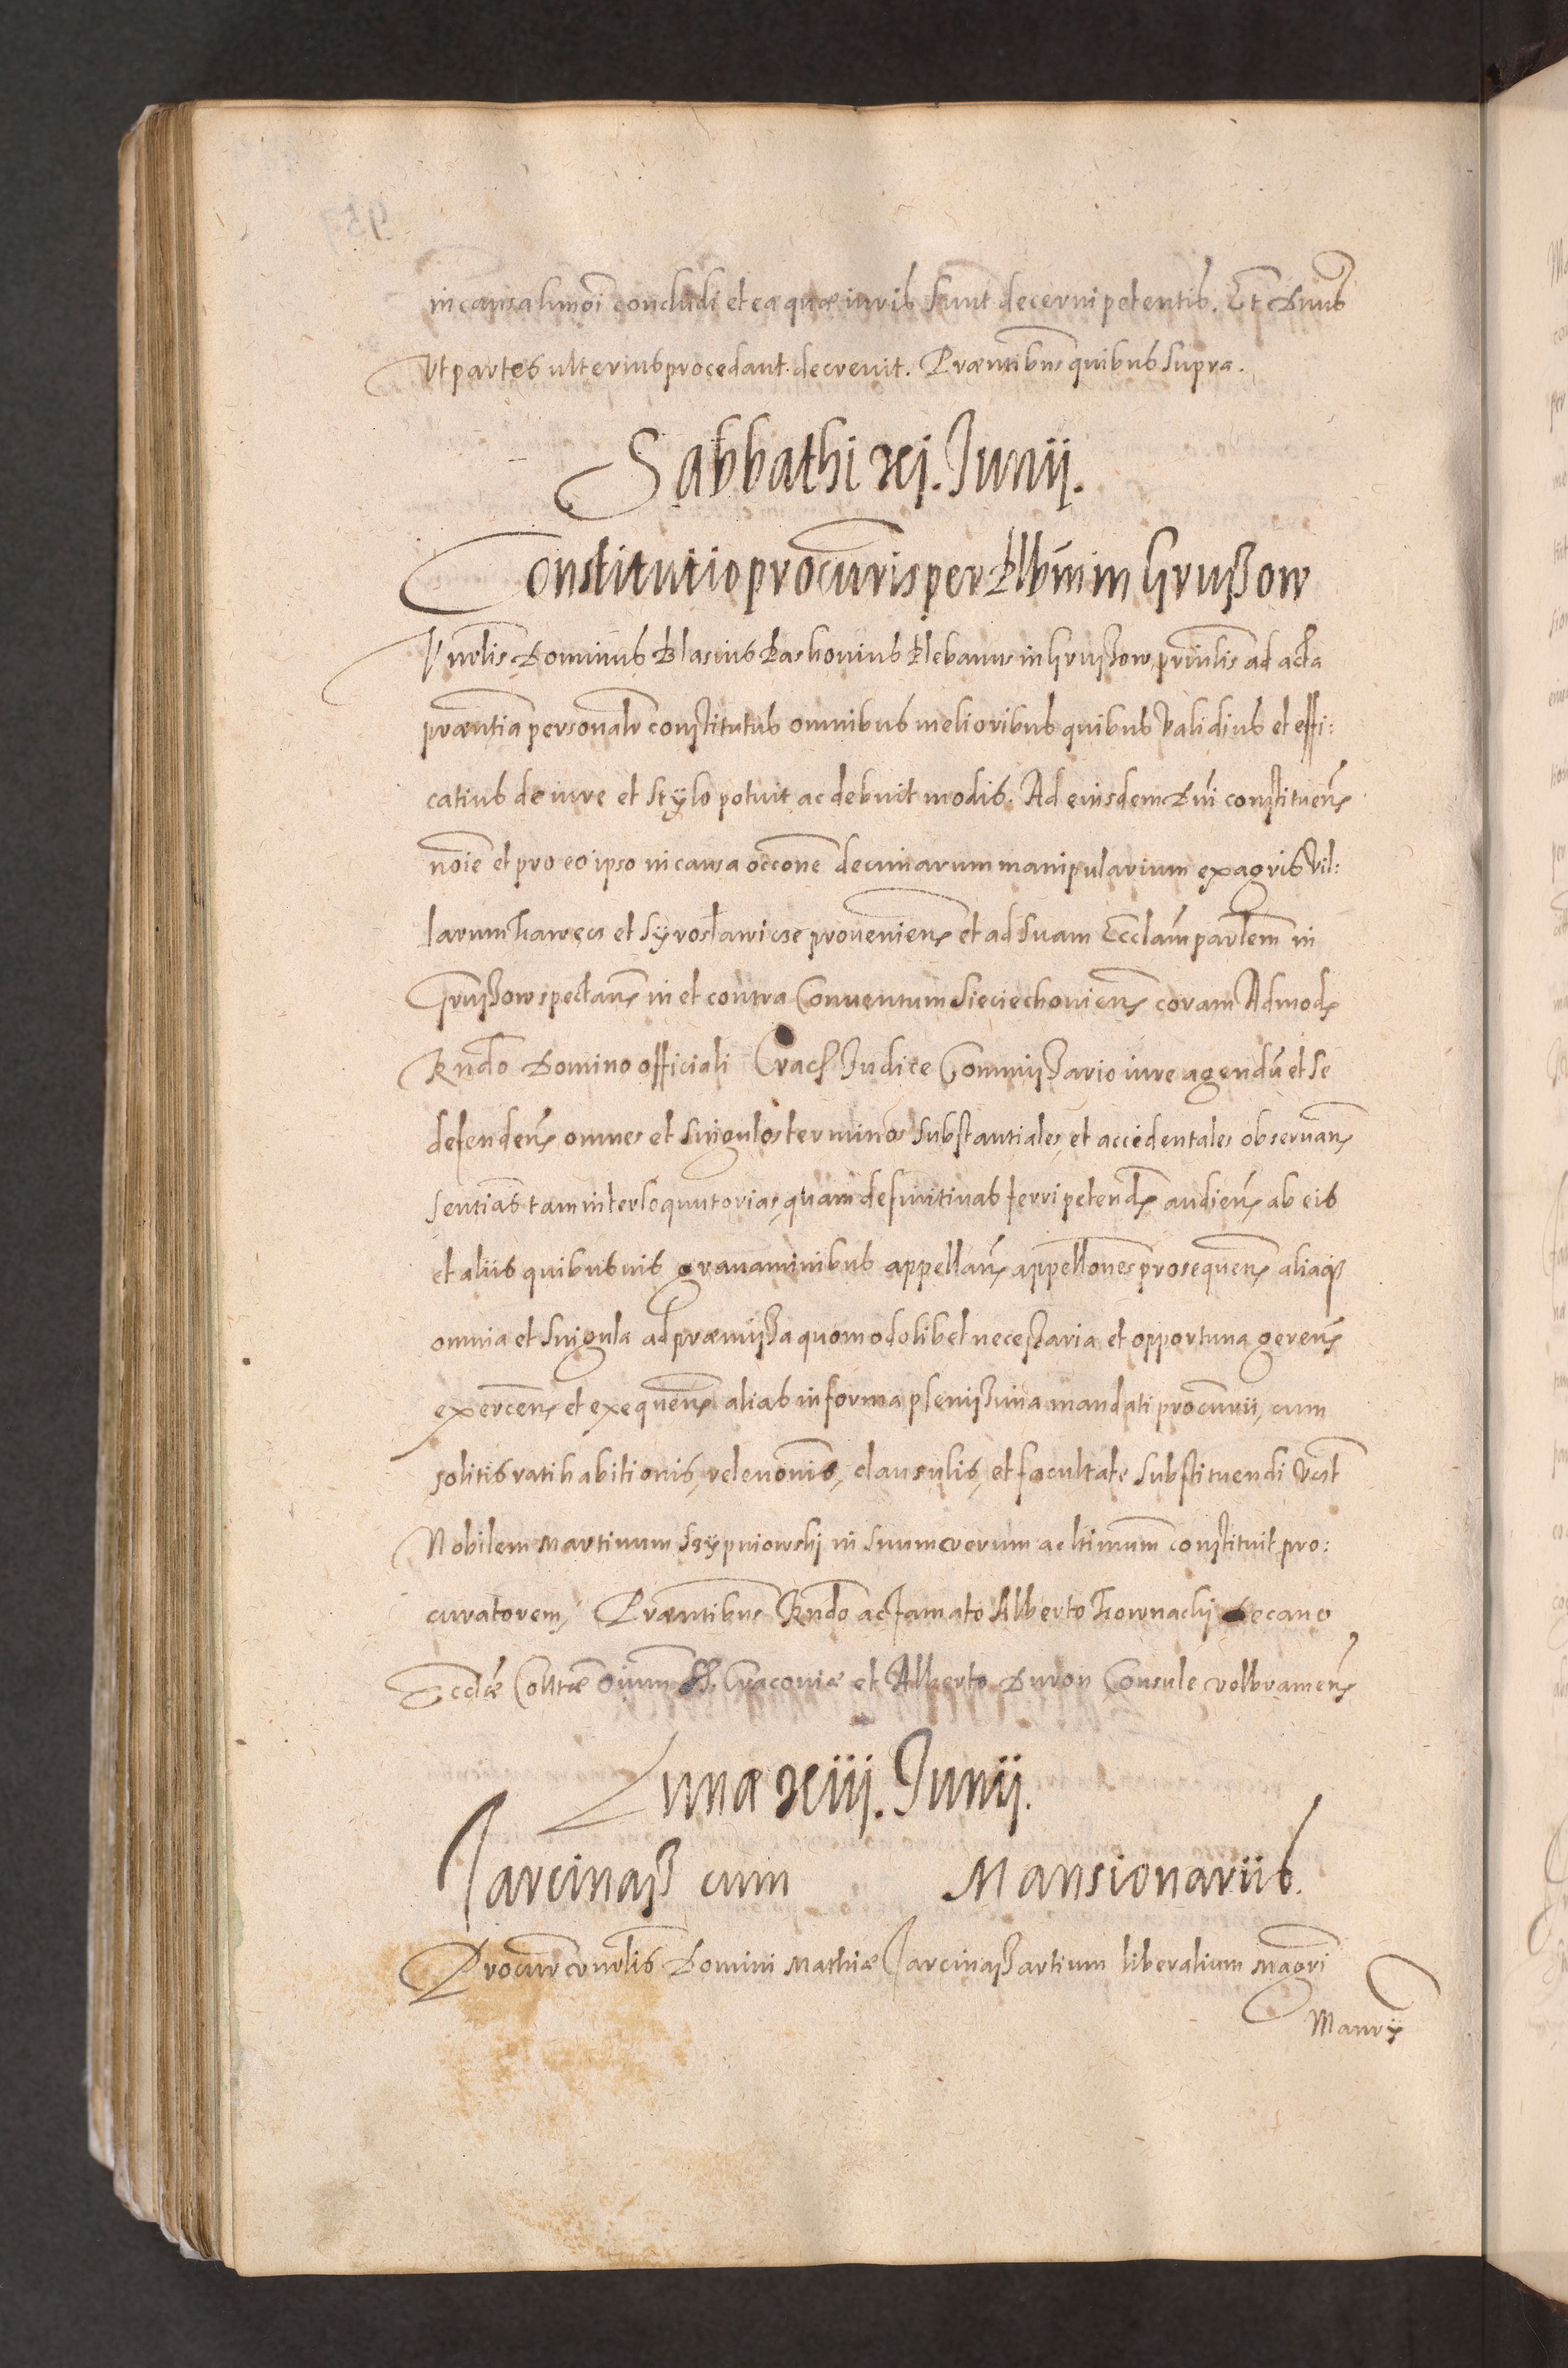 in causa hmoi concludi et ea quae iuris sunt decerni petentis. Et Dnus
Vt partes ulterius procedant decrevit. Praentibus quibus supra.
Sabbathi xi. Junii.
Constitutio procuris per Plbnum in Grußow
Vnrlis Dominus Blasius Plebanus in Grußow prinlis ad acta
praentia personalr constitutus omnibus melioribus quibus validius et effi:
catius de iure et stylo potuit ac debuit modis. Ad eiusdem Dni constituen
noie et pro eo ipso in causa occone decimarum manipularium ex agris vil:
larum et Syroslawicze provenien et ad suam Ecclam parlem in
Grußow spectan in et contra Conventum Sieciechovien coram Admod
Rndo Domino officiali Crac Judice Commissario iure agendu et se
defenden omnes et singulos terminos substantiales et accidentales observan
sentias tam interloquutorias quam definitivas ferri petend audien ab eis
et aliis quibusvis gravaminibus appellan appellones prosequen aliaq
omnia et singula ad praemißa quomodolibet necessaria et opportuna geren
exercen et exequen alias in forma plenißima mandati procurii, cum
solitis ratihabitionis, relevonis, clausulis, et facultate substituendi
Nobilem Martinum in suum verum ac ltimum constituit pro:
curatorem, Praentibus Rndo ac famato Alberto Kownacki Decano
Ecclae Colltae Oium SS. Cracoviae et Alberto Duron Consule Volbramen
Lunae xiii. Junii.
Jarcinaß cum Mansionariis.
Procur vnrlis Domini Mathiae Jarcinaß artium liberalium Magri